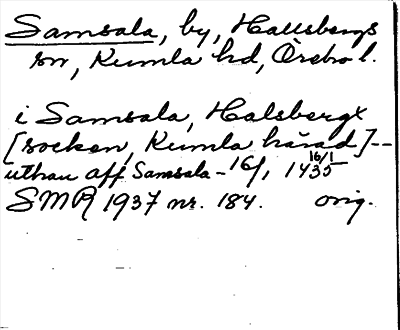 Samsala, by, Hallsbergs
sn, Kumla hd, Örebro l.
i Samsala, Halsbergx
[socken, Kumla härad]--
uthan aff Samsala - 16/1, 1435 16/1
SMR 1937 nr. 184. orig.